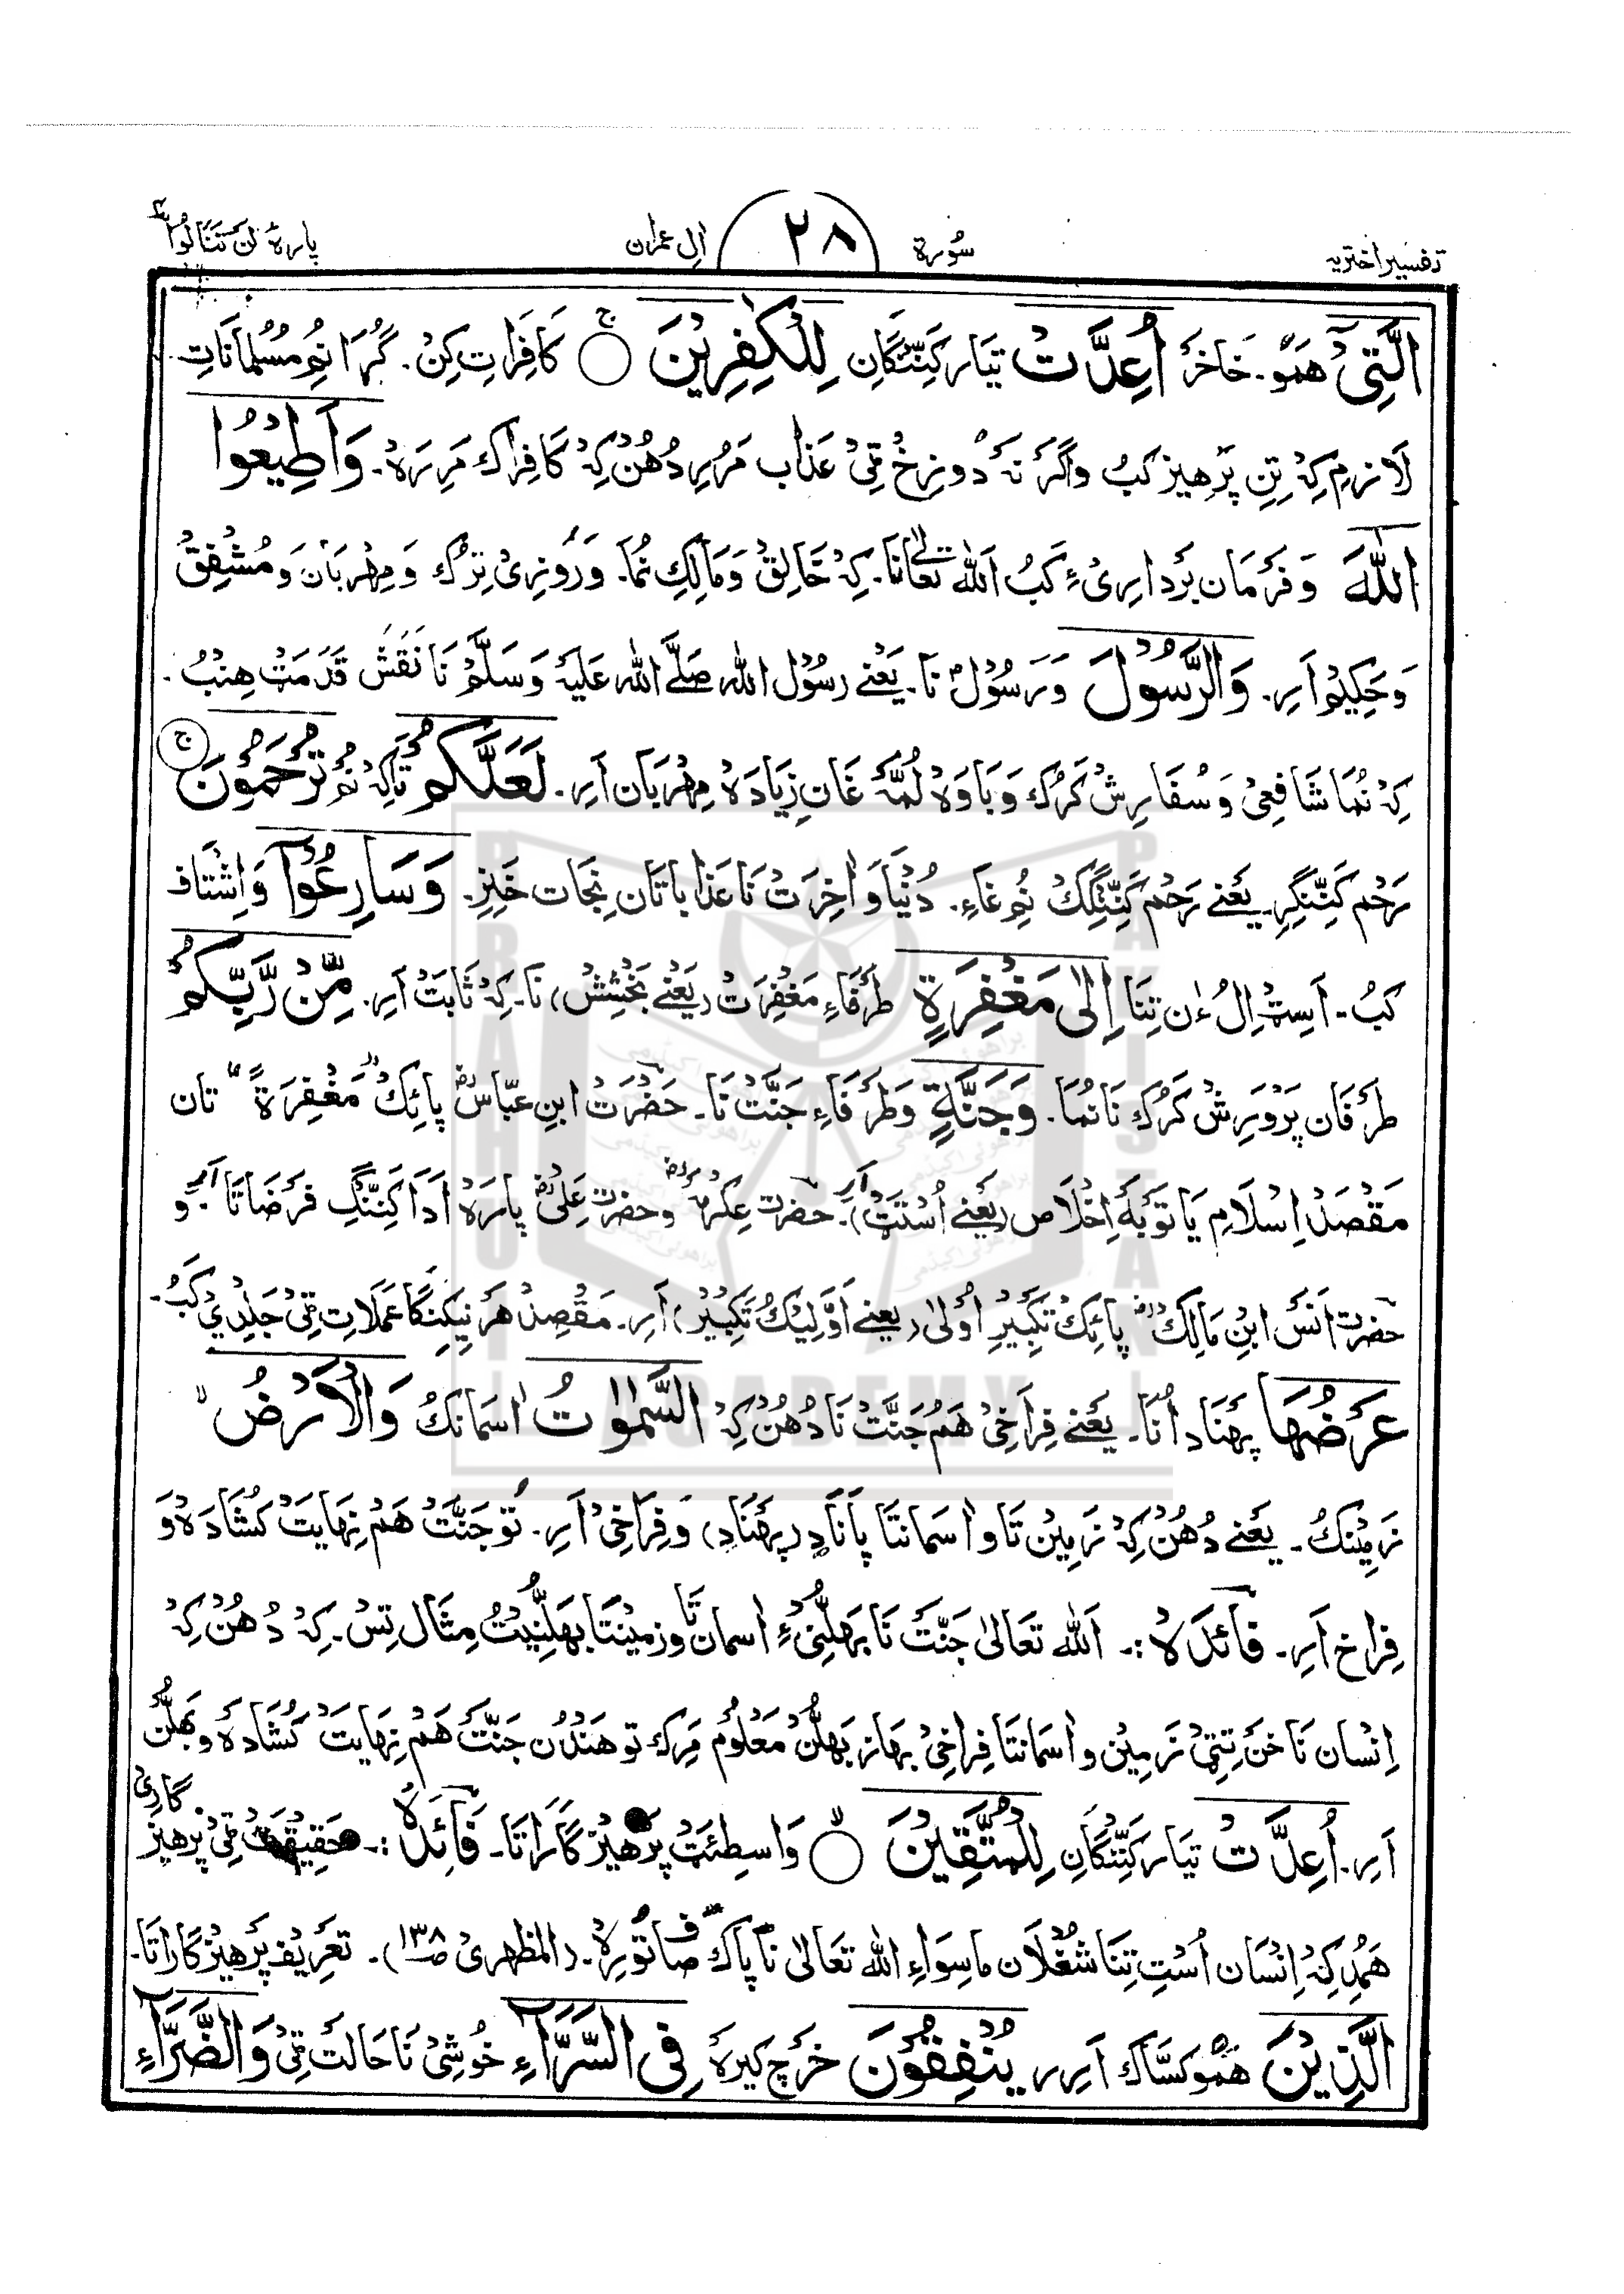 تفسیر اختریہ سُورۃ ۲۸ اٰلِ عمران پارہٴ لَنْ تَنَالُوا ۴
الَّتِیْٓ هَمّو۔ خَاخَرْ اُعِدَّتْ تیّار کَنِنْگان لِلْکٰفِرِیْنَ ○ ج کَافِرَاتِ کِنْ۔ گُڑا نُم مُسُلمانَاتِ
لَازِم کِہْ تِن پَرْهیز کبُ وَاگَرْ نَہ دُونِخْ ٹیْ عَذَاب مَرُیر دُهُنْ کِہْ کَافِرَاک مَرِرَہْ۔ وَاَطِیْعُوا
اللّٰہَ وَفَرْمَان بَرْدَارِیْ ءِ کَبُ اَللّٰہ تَعَالٰی نَا۔ کِہْ خَالِقْ وَمَالِکِ نُمَا۔ وَرُونرِیْ تِرُک وَمِهْرِبَان وَمُشْفِقْ
وَحَکِیمْ اَرِ۔ وَالرَّسُوْلَ وَرَسُوْل نَا۔ یَعْنے رسُوْل اللّٰہ صَلَّے اللّٰہ عَلَیْہِ وَسَلَّمْ نَا نَقْشِ قَدَمَتْ هِنْبُ۔
کِہْ نُمَا شَافِعِیْ وَسُفَارِشْ کَرُک وَبَاوَہْ لُمَّہْ غَان زِیَادَہْ مِهْرِبَان اَرِ۔ لَعَلَّکُمْ تَاکِہْ نُمْ تُرْحَمُوْنَ ج
رَحْم کَنِّنْگِرِ۔ یَعْنے رَحْم کَنِّنْگِک نُم غَاءِ۔ دُنْیَا وَاٰخِرَتْ نَا عَذَابَاتَان نِجَات خَنِزِ۔ وَسَارِعُوْٓا وَاِشْتَاف
کَبُ۔ اَسِہْ اِلُ ءِن تِنَا اِلٰی مَغْفِرَةٍ طَرْفَاءِ مَغْفِرَتْ (یَعْنے بَخْشِشْ) نَا۔ کِہْ ثَابَتْ اَرِ۔ مِّنْ رَّبِّکُمْ
طَرْفَان پَرْوَرِشْ کَرُک نَا نُمَا۔ وَجَنَّةٍ وَطَرْفَاءِ جَنَّتْ نَا۔ حَضْرَتْ ابنِ عبّاسؓ پائِکْ "مَغْفِرَةٍ" تان
مَقْصَدْ اِسْلَام یَا تَوْبَہ اِخْلَاص (یَعْنے اُسْتَتْ) اَرِ۔ حضرت عِکْرمہؓ وحضرت علیؓ پارَہْ اَدَا کَنِنْگِ فَرْضَاتَا اَرِ۔ وَ
حضرت اَنَس ابنِ مَالِکؓ پائِکْ تکبیرِ اُولٰی (یعنے اَوَّلِیْک تَکْبِیْر) اَرِ۔ مَقْصِدْ هَر نیکنگَا عَمَلَاتِ ٹیْ جَلْدِیْ کَبُ۔
عَرْضُهَا پهنَاد اُنَا۔ یَعْنے فِرَاخِیْ هَمْ جَنَّتْ نَا دُهُنْ کِہْ السَّمٰوٰتُ اٰسَمَانَکْ وَالْاَرْضُ
زَمِیْنکْ۔ یَعْنے دُهُنْ کِہْ زَمِیْن تَا وَاٰسَمَانتَا پَانَاد (پهنَاد) وَفِرَاخِیْ اَرِ۔ تُو جَنَّتْ هَمْ نِهَایَتْ کُشَادَہْ وَ
فِرَاخ اَرِ۔ فَائِدَہْ:۔ اَللّٰہ تَعَالٰی جَنَّتْ نَا بَهلُّنِیْ ءِ اٰسمان تَا وَزمینتَا بهلُّنِیْتْ مِثَال تِسْ۔ کِہْ دُهُنْ کِہْ
اِنْسان نَا خَنْ تِیْ زَمِیْن وَاٰسمَانتَا فِرَاخِیْ بهَاز بَهلُّنْ مَعْلُوْم مَرِک تو هَنْدُن جَنَّتْ هَمْ نِهَایَتْ کُشَادَہ وَبهلُّنْ
اَرِ۔ اُعِدَّتْ تَیَّار کَنِّنْگَان لِلْمُتَّقِیْنَ ○ وَاسطِئَتْ پَرْهیزْ گَارَاتَا۔ فَائِدَہْ:۔ حَقِیْقَتْ ٹیْ پَرْهیز گَارِیْ
هَمُدِ کِہْ اِنْسَان اُسْتِ تِنَا شُغْلَان مَاسِوَاءِ اللّٰہ تعَالٰی نَا پَاک صَاف تُورِہْ۔ (المظهری ص۱۳۸)۔ تَعْرِیفِ پَرْهیزگارَاتَا۔
الَّذِیْنَ هَمُو کسَّاک اَرِر یُنْفِقُوْنَ خَرْچ کیرہ فِی السَّرَّآءِ خُوشِیْ نَا حَالَتْ ٹیْ وَالضَّرَّآءِ
BRAHUI ACADEMY PAKISTAN